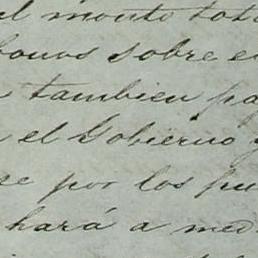 el monto tot
bonos sobre e
tambien pa
el Gobierno y
se por los pu
hará a med